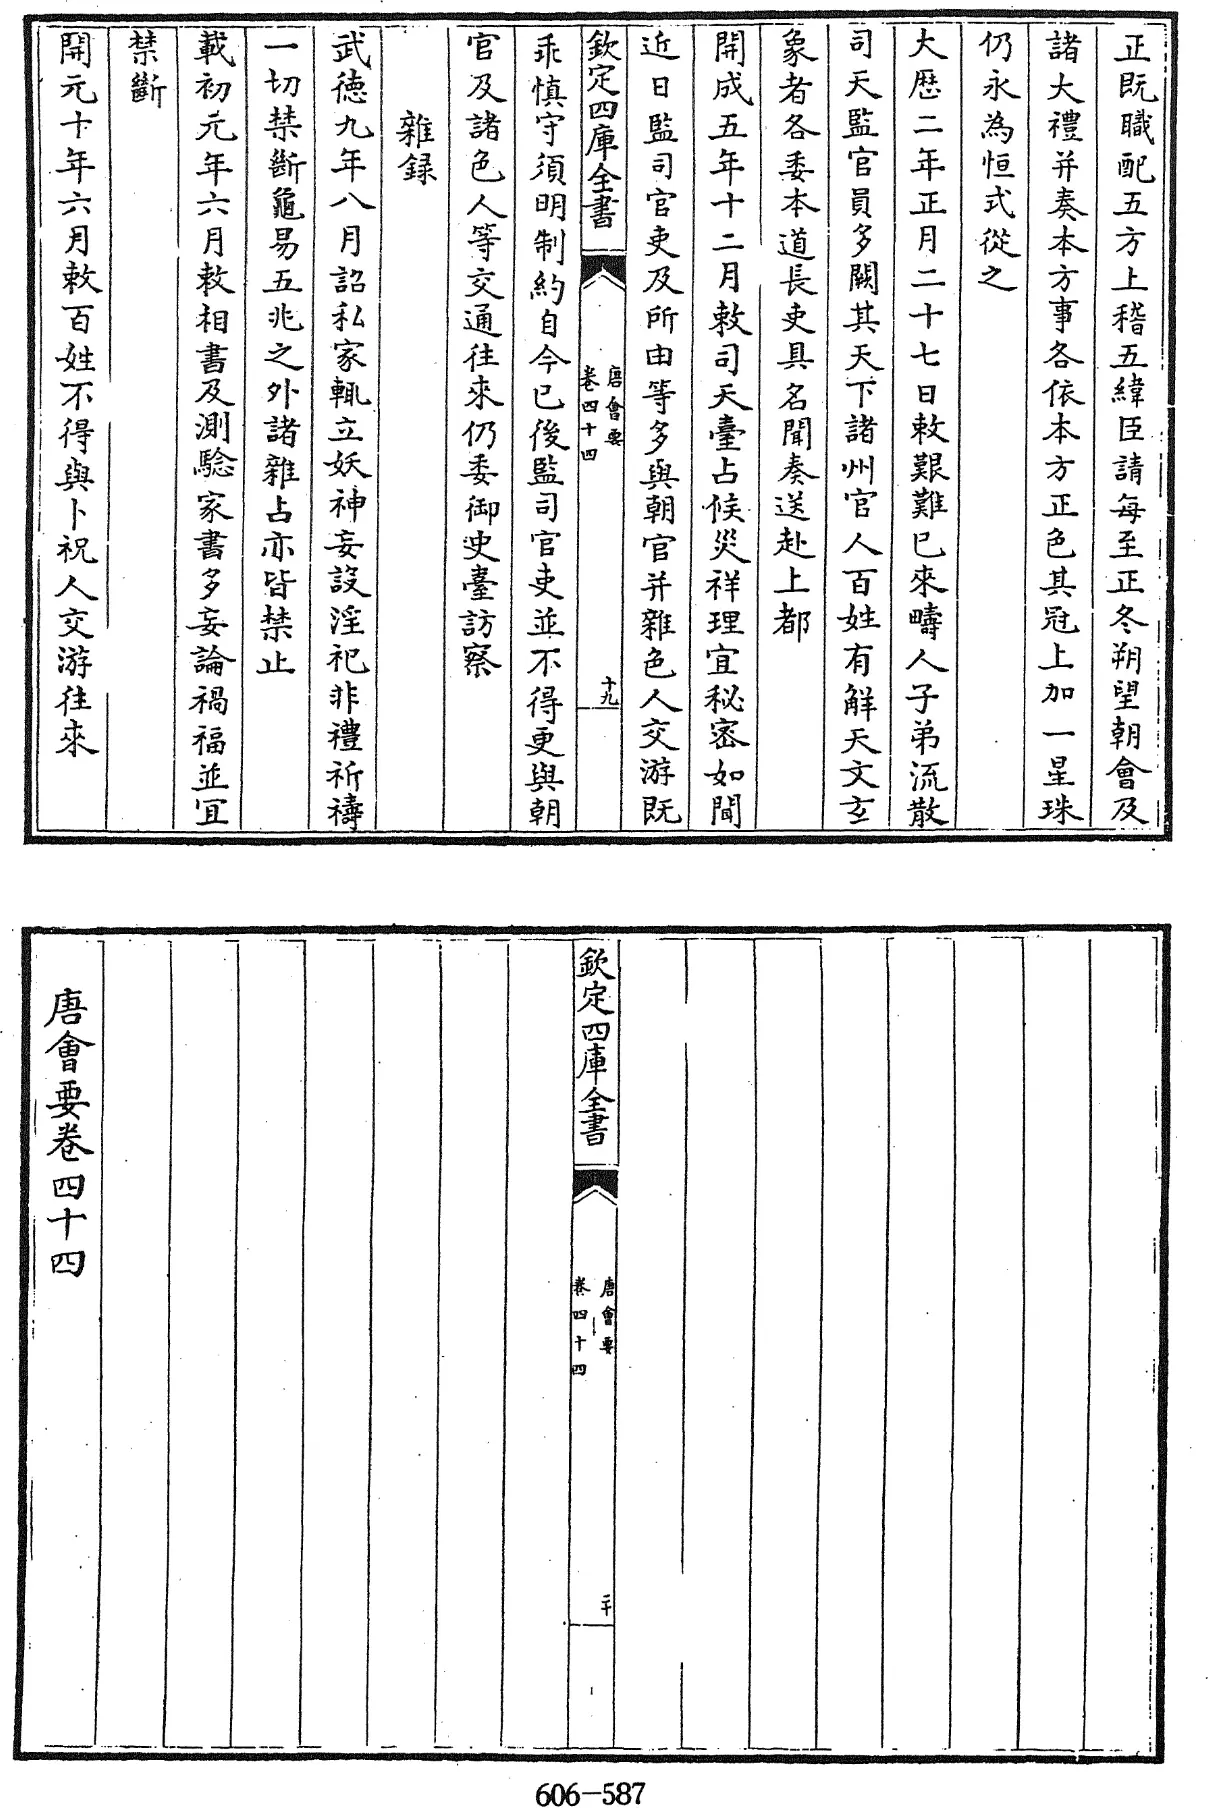 正既職配五方上稽五緯臣請每至正冬朔望朝會及
諸大禮并奏本方事各依本方正色其冠上加一星珠
仍永為恒式從之
大歴二年正月二十七日敕艱難已來疇人子弟流散
司天監官員多闕其天下諸州官人百姓有解天文玄
象者各委本道長吏具名聞奏送赴上都
開成五年十二月敕司天臺占候災祥理宜秘密如聞
近日監司官吏及所由等多與朝官并雜色人交游既
欽定四庫全書
唐會要
卷四十四
十九
乖慎守須明制約自今已後監司官吏並不得更與朝
官及諸色人等交通往來仍委御史臺訪察
雜録
武德九年八月詔私家輒立妖神妄設淫祀非禮祈禱
一切禁斷龜易五兆之外諸雜占亦皆禁止
載初元年六月敕相書及測驗家書多妄論禍福並宜
禁斷
開元十年六月敕百姓不得與卜祝人交游往來
欽定四庫全書
唐會要
卷四十四
二十
唐會要卷四十四
606-587